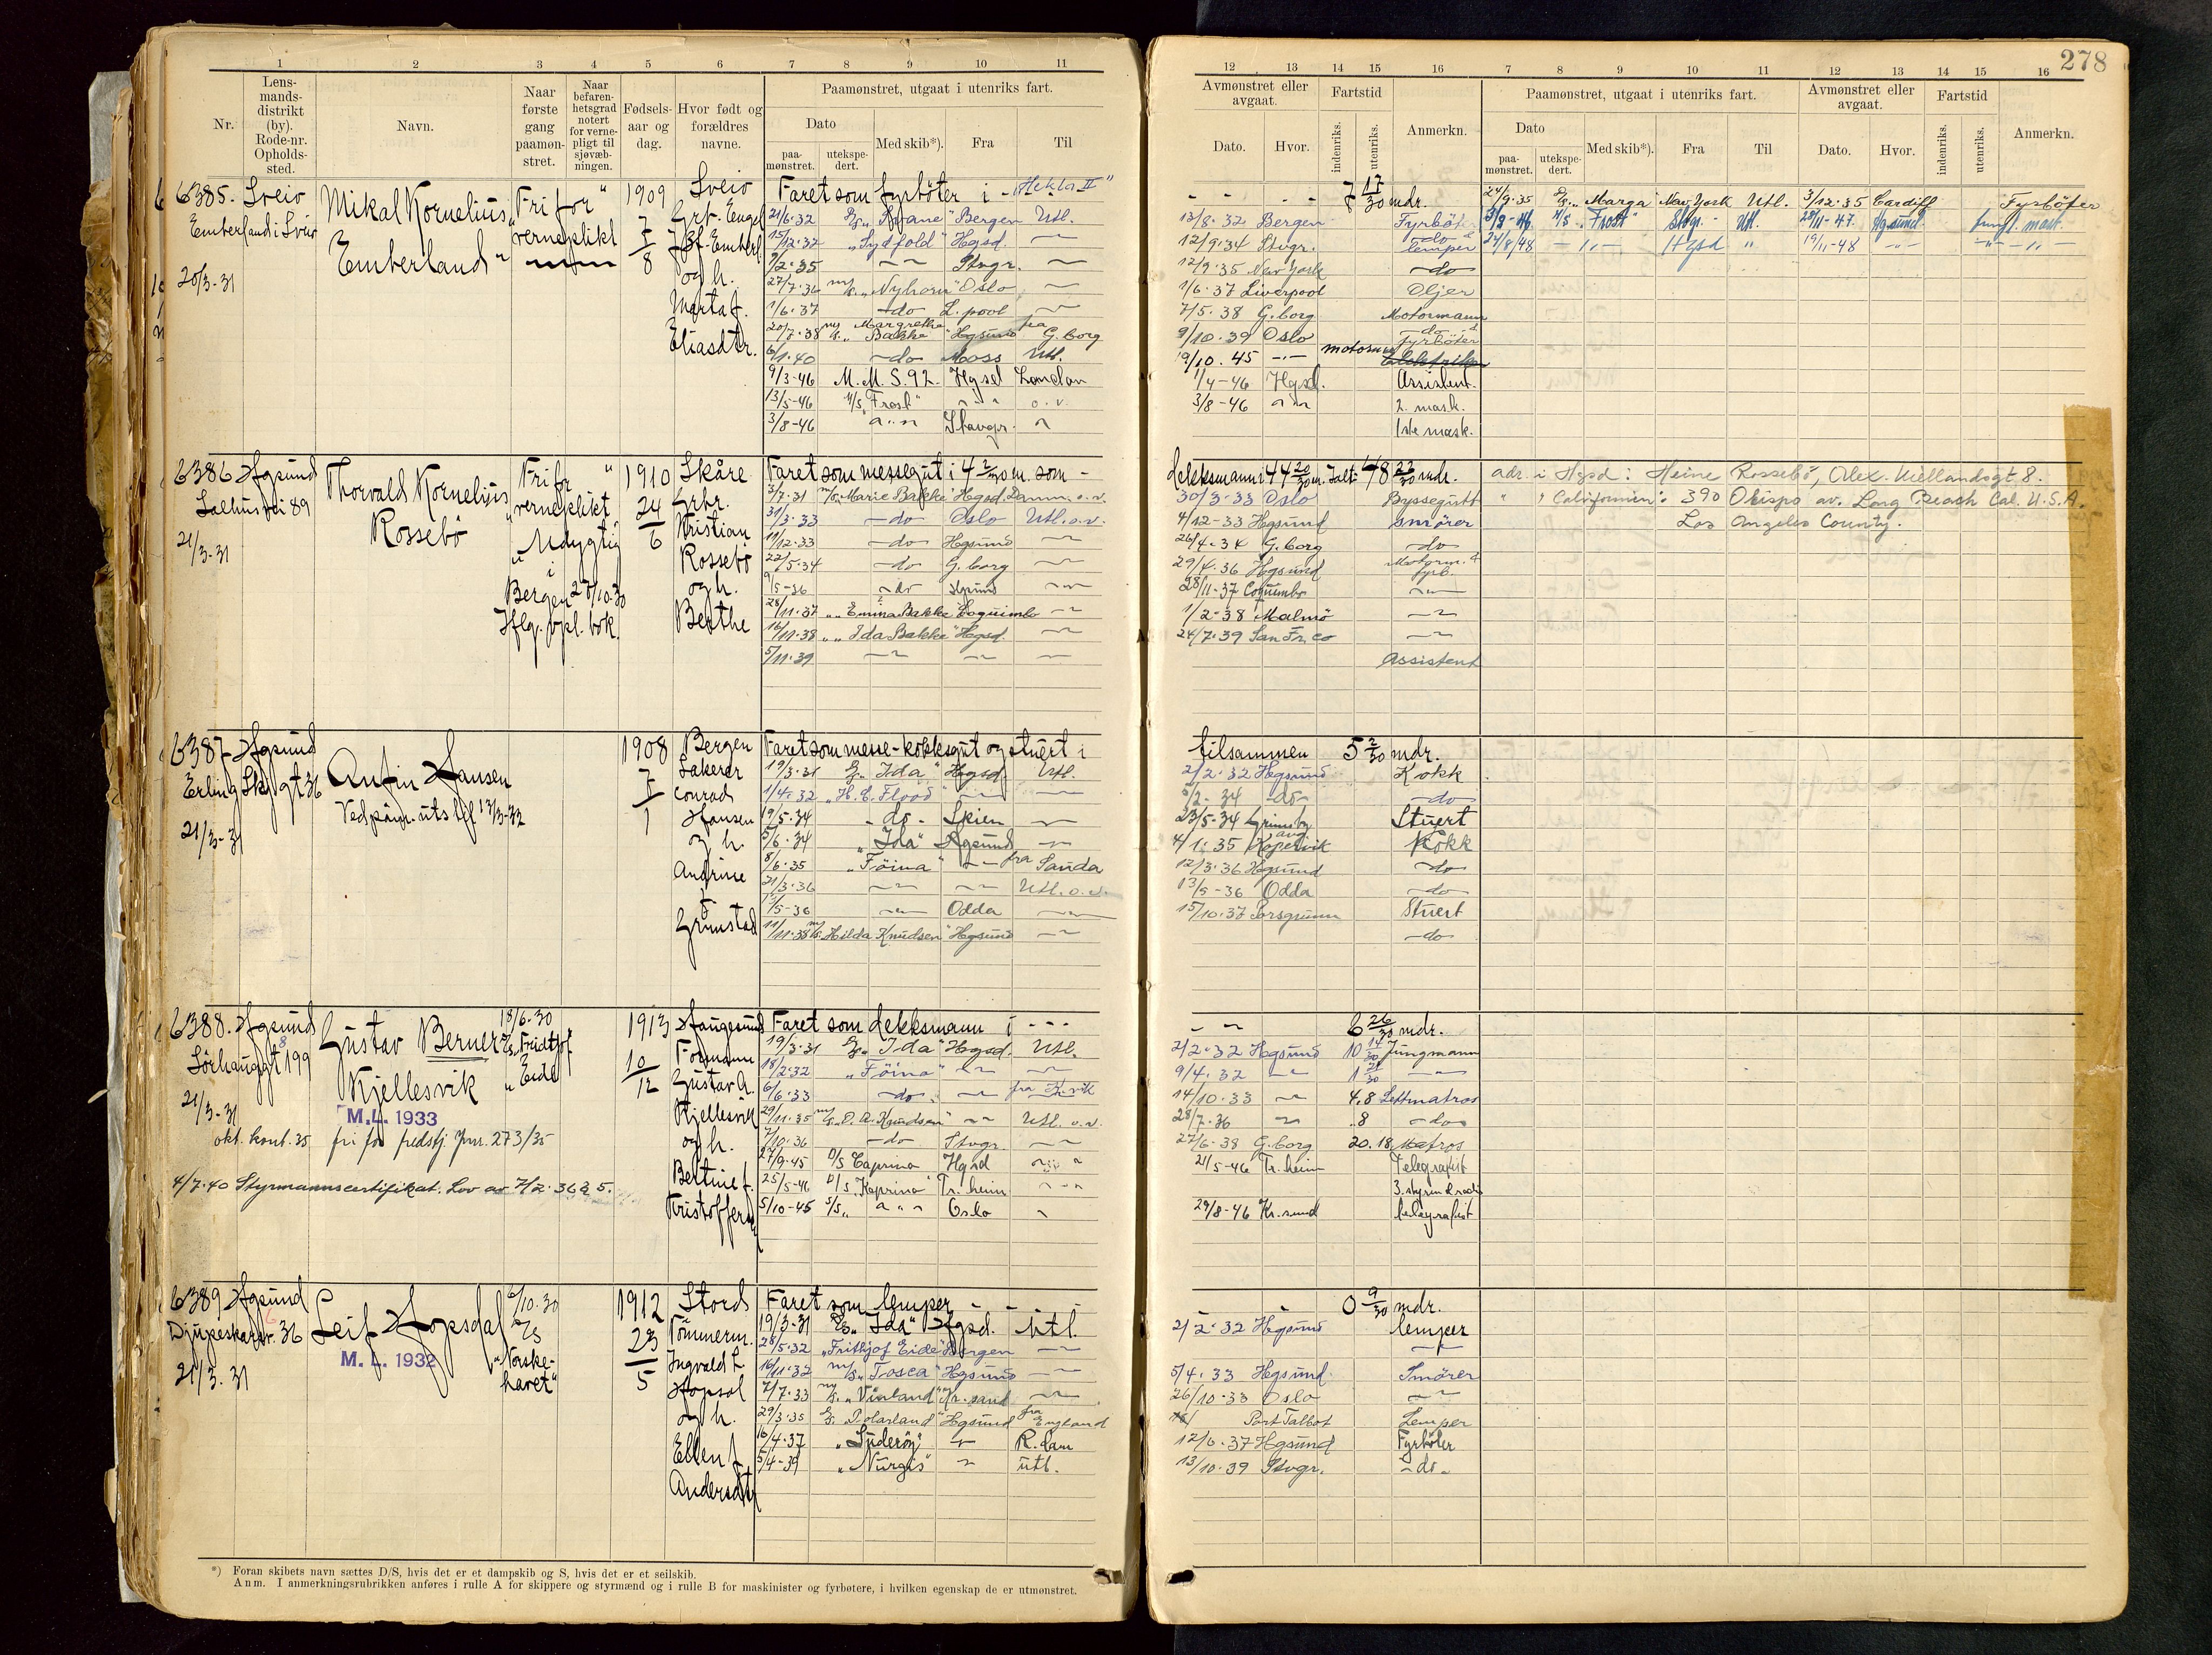 278
1 2 3 4 5 6 7 8 9 10 11
12 13 14 15 16 7 8 9 10 11 12 13 14 15 16
Nr.
Lens-
mands-
distrikt
(by).
Rode-nr.
Opholds-
sted.
Navn.
Naar
første
gang
paamøn-
stret.
Naar
befaren-
hetsgrad
notert
for verne-
pligt til
sjøvæb-
ningen.
Fødsels-
aar og
dag.
Hvor født og
forældres
navne.
Paamønstret, utgaat i utenriks fart.
Dato
paa-
mønstret.
utekspe-
dert.
Med skib*).
Fra
Til
Avmønstret eller
avgaat.
Dato.
Hvor.
Fartstid
indenriks.
utenriks.
Anmerkn.
Paamønstret, utgaat i utenriks fart.
Dato
paa-
mønstret.
utekspe-
dert.
Med skib*).
Fra
Til
Avmønstret eller
avgaat.
Dato.
Hvor.
Fartstid
indenriks.
utenriks.
Anmerkn.
6385. Sveio
Emberland i Sveio
20/3-31
Mikal Kornelius
Emberland
"Fri for
verneplikt"
1909
7/8
Sveio
og h.
Marta f.
Eliasdtr.
Faret som fyrbøter i "Hekla II"
7 17/30 mdr.
21/6.32 D/S "Svane" Bergen Utl.
15/12.32 "Sydfold" Hgsd.
9/2.35 Stvgr.
27/7.36 m/s "Nyhorn" Oslo
1/6.37 do L.pool
20/7.38 m/s "Margrethe Bakke" Hgsund fra G.borg
6/1.40 do Moss Utl.
9/3-46 M.M.S.92. Hgsd London
13/5-46 M/S "Frost" o.v.
3/8-46 Stavgr.
13/8.32 Bergen Fyrbøter
12/9.34 Stvgr. do & lemper
12/9.35 New York do
1/6.37 Liverpool Oljer
7/5.38 G.borg Motormann
9/10.39 Oslo do & fyrbøter
19/10.45 motormann
1/4-46 Hgsd. Assistent.
3/8-46 2. mask.
1ste mask.
24/9.35 D/S "Marga" New York Utl. 3/12.35 Cardiff Fyrbøter
3/8-46 M/S "Frost" Stvgr. Utl. 28/11-47 Hgsund
24/8/48 Hgsd 19/11-48
6386 Hgsund
Salhusvei 89
21/3-31
Thorvald Kornelius
Rossebø
"Fri for
verneplikt"
"Udygtig"
i
Bergen 27/10.30
Iflg. vpl. bok.
1910
24/6
Skåre
Grbr.
Kristian
Rossebø
og h.
Berthe
Faret som messegut i 4 2/30 m. som
dekksmann i 44 20/30 m. Ialt: 48 22/30 mdr.
3/7.31 m/s "Marie Bakke" Hgsd. Danm. o.v.
31/3.33 do Oslo Utl. o.v.
11/12.33 do Hgsund
22/5.34 do G.borg
9/5-36 do Hgsund
28/11.37 "Emma Bakke" Coquimbo
16/11.38 "Ida Bakke" Hgsd.
5/11.39
30/3.33 Oslo Byssegutt
4/12-33 Hgsund smører
26/4.34 G.borg do
29/4.36 Hgsund Motorm. & fyrb.
28/11-37 Coquimbo
1/2-38 Malmø
24/7.39 San Fr.co
Assistent
adr. i Hgsd: Heine Rossebø, Alex. Kiellandsgt 8.
" " Californien: 390 Obispo av. Long Beach Cal. U.S.A.
Los Angeles County.
6387 Hgsund
Erling Skj.gt 36
21/3-31
Anfin Hansen
1908
7/1
Bergen
Lakerer
Conrad
Hansen
og h.
Andrine
f.
Grimstad
Faret som messe-kokksgut og stuert i
tilsammen 5 2/30 mdr.
19/3.31 D/S "Ida" Hgsd. Utl.
1/4.32 "H.C. Flood"
19/5.34 do Skien
5/6.34 "Ida" Hgsund
8/6.35 "Föina" fra Sauda
21/3.36 Utl. o.v.
13/5-36 Odda
11/11.38 m/s "Hilda Knudsen" Hgsund
2/2.32 Hgsund Kokk
5/2-34 do do
23/5-34 Grimsby Stuert
4/1.35 Kopervik Kokk
12/3.36 Hgsund do
13/5-36 Odda do
15/10.37 Porsgrunn Stuert
do
6388. Hgsund
Sörhauggt 199
21/3-31
Gustav Berner
Kjellesvik
M.L. 1933
18/6.30
D/S "Fridtjof
Eide"
4/7.40 Styrmannscertifikat. Lov av 7/2.36 § 5.
1913
10/12
Haugesund
Formann
Gustav A.
Kjellesvik
og h.
Bertine f.
Kristoffersen
Faret som dekksmann i
6 26/30 mdr.
19/3.31 D/S "Ida" Hgsd. Utl.
18/2.32 "Föina"
6/6.33 do
29/11.35 m/s "O.A. Knudsen" Utl. o.v.
7/10.36 do Stvgr
27/9.45 D/S Caprino Hgsd
25/5-46 D/S "Kaprino" Tr.heim
5/10-45 Oslo
2/2.32 Hgsund 10 14/30 Jungmann
9/4.32 1 21/30
14/10.33 4,8 Lettmatros
28/7.36 ..8 do
27/6-38 G.borg 20.18 Matros
21/5-46 Tr.heim Telegrafist
29/8-46 Kr.sund telegrafist
6389 Hgsund
Djupeskarsv. 36
21/3.31
Leif Hopsdal
M.L. 1932
6/10.30
D/S
"Norske-
havet"
1912
23/5
Stord
Tömmerm.
Ingvald L
Hopsdl
og h.
Ellen f.
Andersdtr
Faret som lemper
0 9/30 mdr.
19/3-31 D/S "Ida" Hgsd. Utl.
28/5.32 "Frithjof Eide" Bergen
16/11.32 m/s "Tosca" Hgsund
7/7.33 m/s "Vinland" Kr.sand
29/3.35 D/S "Polarland" Hgsund fra England
16/4.37 "Suderøy" R.dam
5/4-39 "Nurgis" utl.
2/2-32 Hgsund lemper
5/4.33 Hgsund. Smører
26/10-33 Oslo
Port Talbot Lemper
12/6.37 Hgsund Fyrbøter
13/10.39 Stvgr. do.
*) Foran skibets navn sættes D/S, hvis det er et dampskib og S, hvis det er et seilskib.
Anm. I anmerkningsrubrikken anføres i rulle A for skippere og styrmænd og i rulle B for maskinister og fyrbøtere, i hvilken egenskap de er utmønstret.